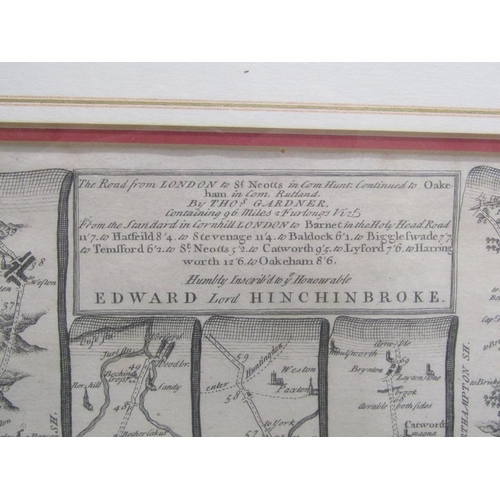 The Road from LONDON to St. Neotts in Com Hunt: Continued to Oake-
ham in Com. Rutland.
By THOs. GARDNER.
Containing 96 Miles 2 Furlongs Vizt.
From the Standard in Cornhill LONDON to Barnet in the Holy Head Road
11'7. to Hatfeild 8'4. to Stevenage 11'4. to Baldock 6'1. to Biggleswade 7'7.
to Temsford 6'2. to St. Neotts 5'2. to Catworth 9'5. to Lyford 7'6. to Harring
worth 12'6. to Oakeham 8'6.
Humbly Inscrib'd to ye. Honourable
EDWARD Lord HINCHINBROKE.
58
50
Sandy
48
59
Huntington
enter
58
57
to York
Weston
Paxton
Brynton
brook
Arrable
both sides
Catworth
magna
THAMPTON SH.
SH.